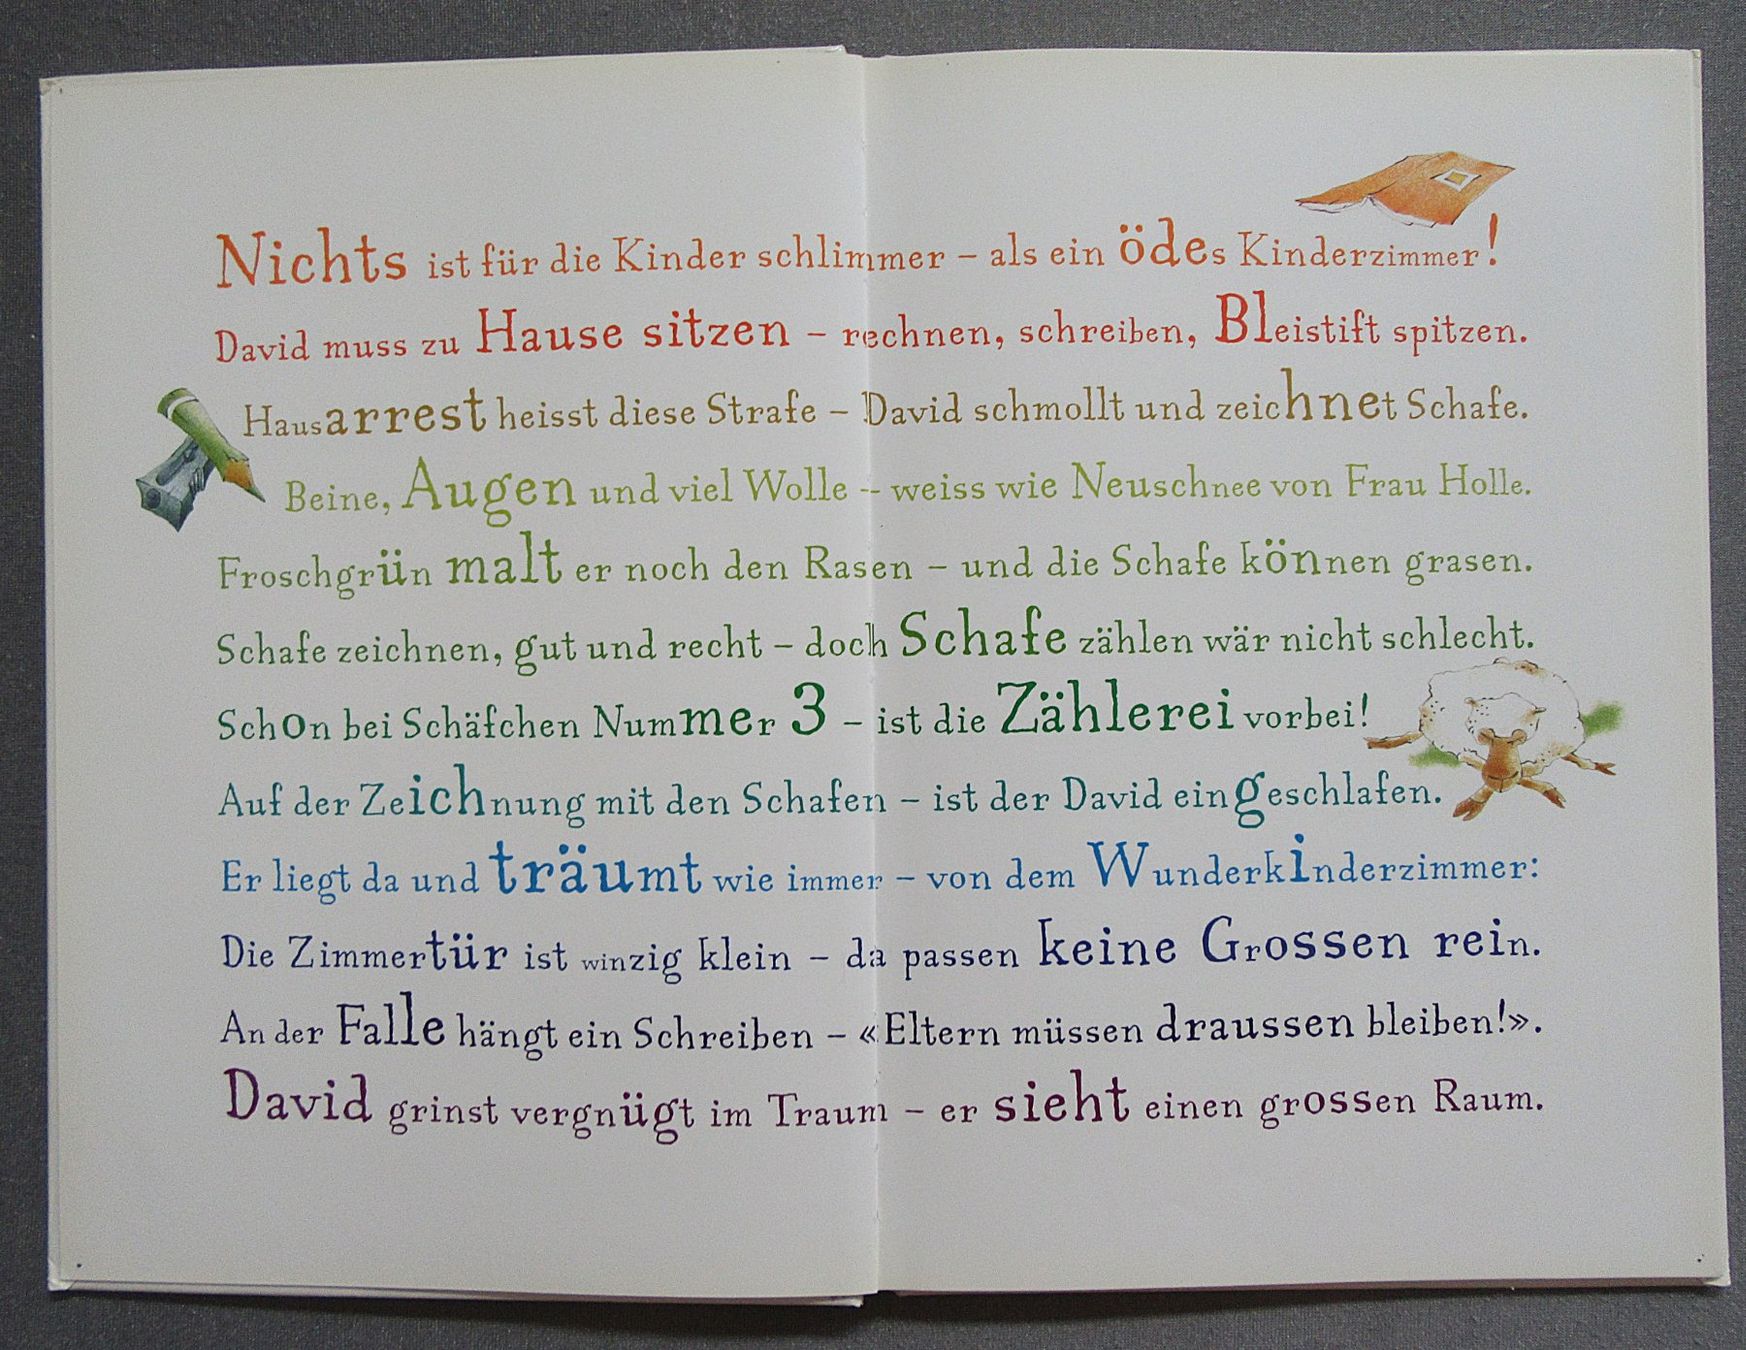 Nichts ist für die Kinder schlimmer – als ein ödes Kinderzimmer!
David muss zu Hause sitzen – rechnen, schreiben, Bleistift spitzen.
Hausarrest heisst diese Strafe – David schmollt und zeichnet Schafe.
Beine, Augen und viel Wolle – weiss wie Neuschnee von Frau Holle.
Froschgrün malt er noch den Rasen – und die Schafe können grasen.
Schafe zeichnen, gut und recht – doch Schafe zählen wär nicht schlecht.
Schon bei Schäfchen Nummer 3 – ist die Zählerei vorbei!
Auf der Zeichnung mit den Schafen – ist der David eingeschlafen.
Er liegt da und träumt wie immer – von dem Wunderkinderzimmer:
Die Zimmertür ist winzig klein – da passen keine Grossen rein.
An der Falle hängt ein Schreiben – «Eltern müssen draussen bleiben!».
David grinst vergnügt im Traum – er sieht einen grossen Raum.